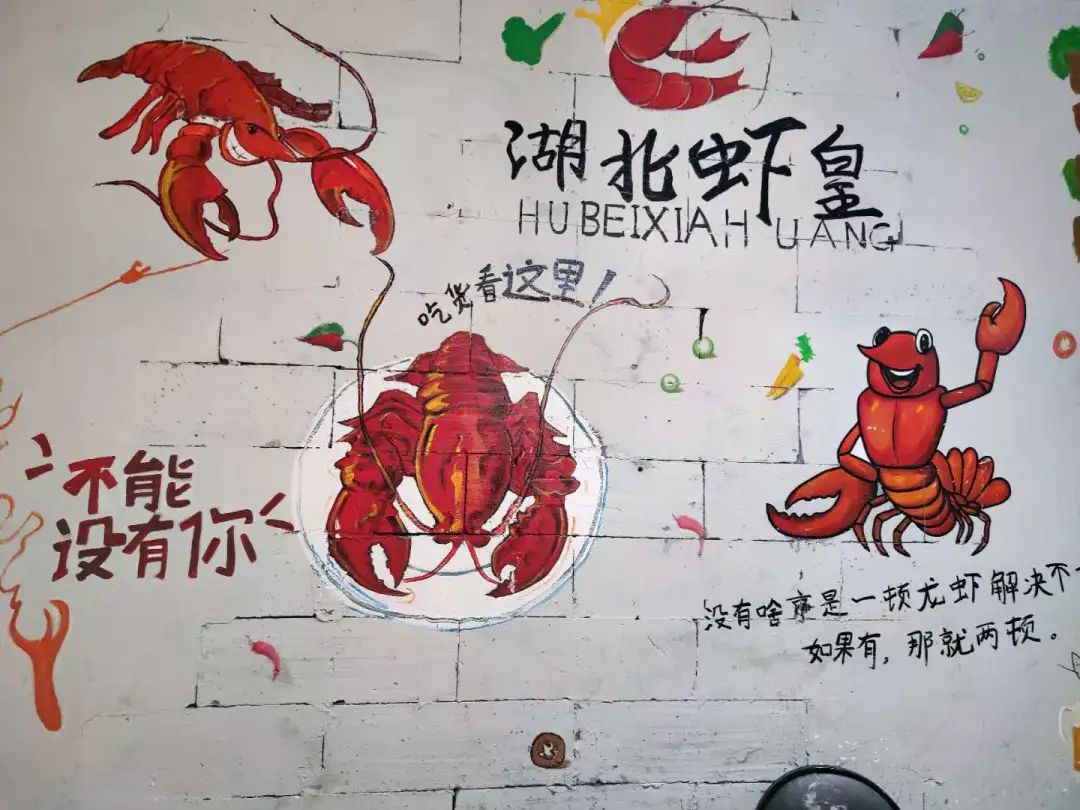 湖北虾皇
HUBEIXIAHUANG
吃货看这里！
不能
没有你
没有啥事是一顿龙虾解决不
如果有，那就两顿。